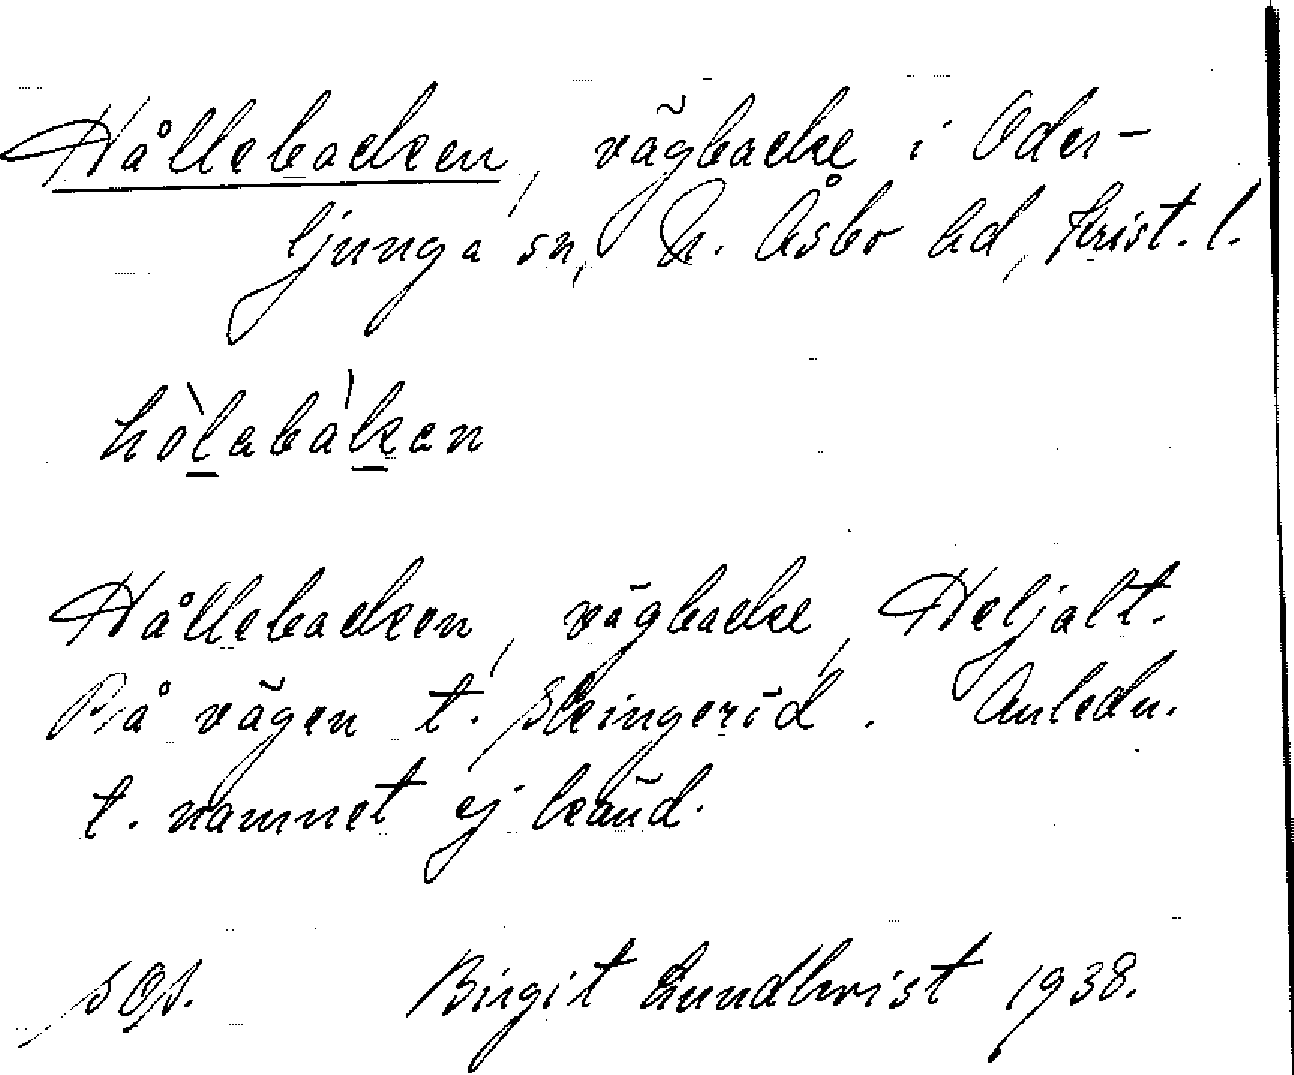 Hållebacken, vägbacke i Oder-
ljunga sn, N. Åsbo hd, Krist. l.
hòlabàkan
Hållebacken, vägbacke, Heljalt.
På vägen t. Skingeröd. Anledn.
t. namnet ej känd.
SOS. Birgit Lundkvist 1938.